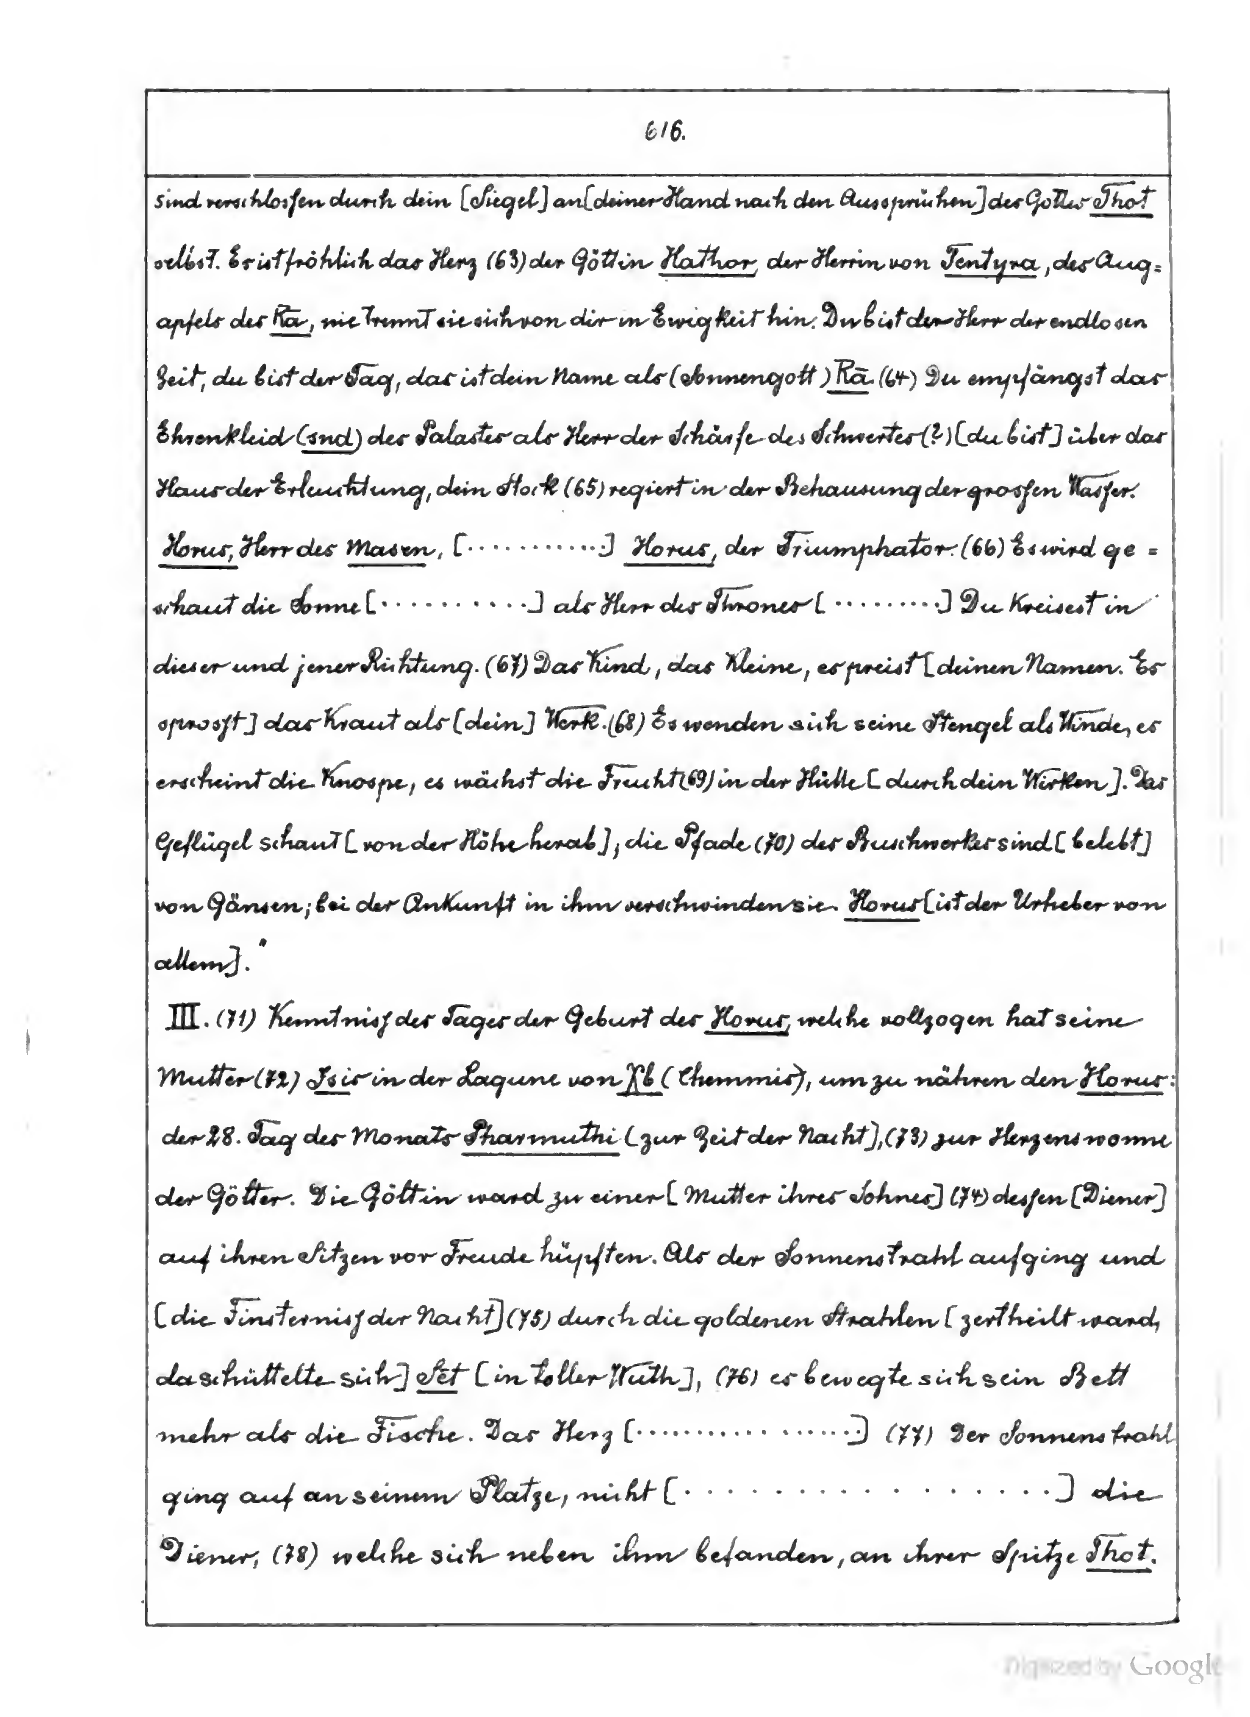 616.
sind verschlossen durch dein [Siegel] an [deiner Hand nach den Aussprüchen] des Gottes Thot
selbst. Es ist fröhlich das Herz (63) der Göttin Hathor, der Herrin von Tentyra, des Aug=
apfels des Rā, nie trennt sie sich von dir in Ewigkeit hin. Du bist der Herr der endlosen
Zeit, du bist der Tag, das ist dein Name als (Sonnengott) Rā. (64) Du empfängst das
Ehrenkleid (snd) des Palastes als Herr der Schärfe des Schwertes (?) [du bist] über das
Haus der Erleuchtung, dein Stock (65) regiert in der Behausung der grossen Wasser.
Horus, Herr des Masen, [............] Horus, der Triumphator. (66) Es wird ge=
schaut die Sonne [..........] als Herr des Thrones [.........] Du kreisest in
dieser und jener Richtung. (67) Das Kind, das Kleine, es preist [deinen Namen. Es
sprosst] das Kraut als [dein] Werk. (68) Es wenden sich seine Stengel als Winde, es
erscheint die Knospe, es wächst die Frucht (69) in der Hülle [durch dein Wirken]. Das
Geflügel schaut [von der Höhe herab], die Pfade (70) des Buschwerkes sind [belebt]
von Gänsen; bei der Ankunft in ihm verschwinden sie. Horus [ist der Urheber von
allem]."
III. (71) Kenntniss des Tages der Geburt des Horus, welche vollzogen hat seine
Mutter (72) Isis in der Lagune von Ḫb (Chemmis), um zu nähren den Horus:
der 28. Tag des Monats Pharmuthi [zur Zeit der Nacht], (73) zur Herzenswonne
der Götter. Die Göttin ward zu einer [Mutter ihres Sohnes] (74) dessen [Diener]
auf ihren Sitzen vor Freude hüpften. Als der Sonnenstrahl aufging und
[die Finsterniss der Nacht] (75) durch die goldenen Strahlen [zertheilt ward,
da schüttelte sich] Set [in toller Wuth], (76) es bewegte sich sein Bett
mehr als die Fische. Das Herz [.................] (77) Der Sonnenstrahl
ging auf an seinem Platze, nicht [.................] die
Diener, (78) welche sich neben ihm befanden, an ihrer Spitze Thot.
Digitized by Google